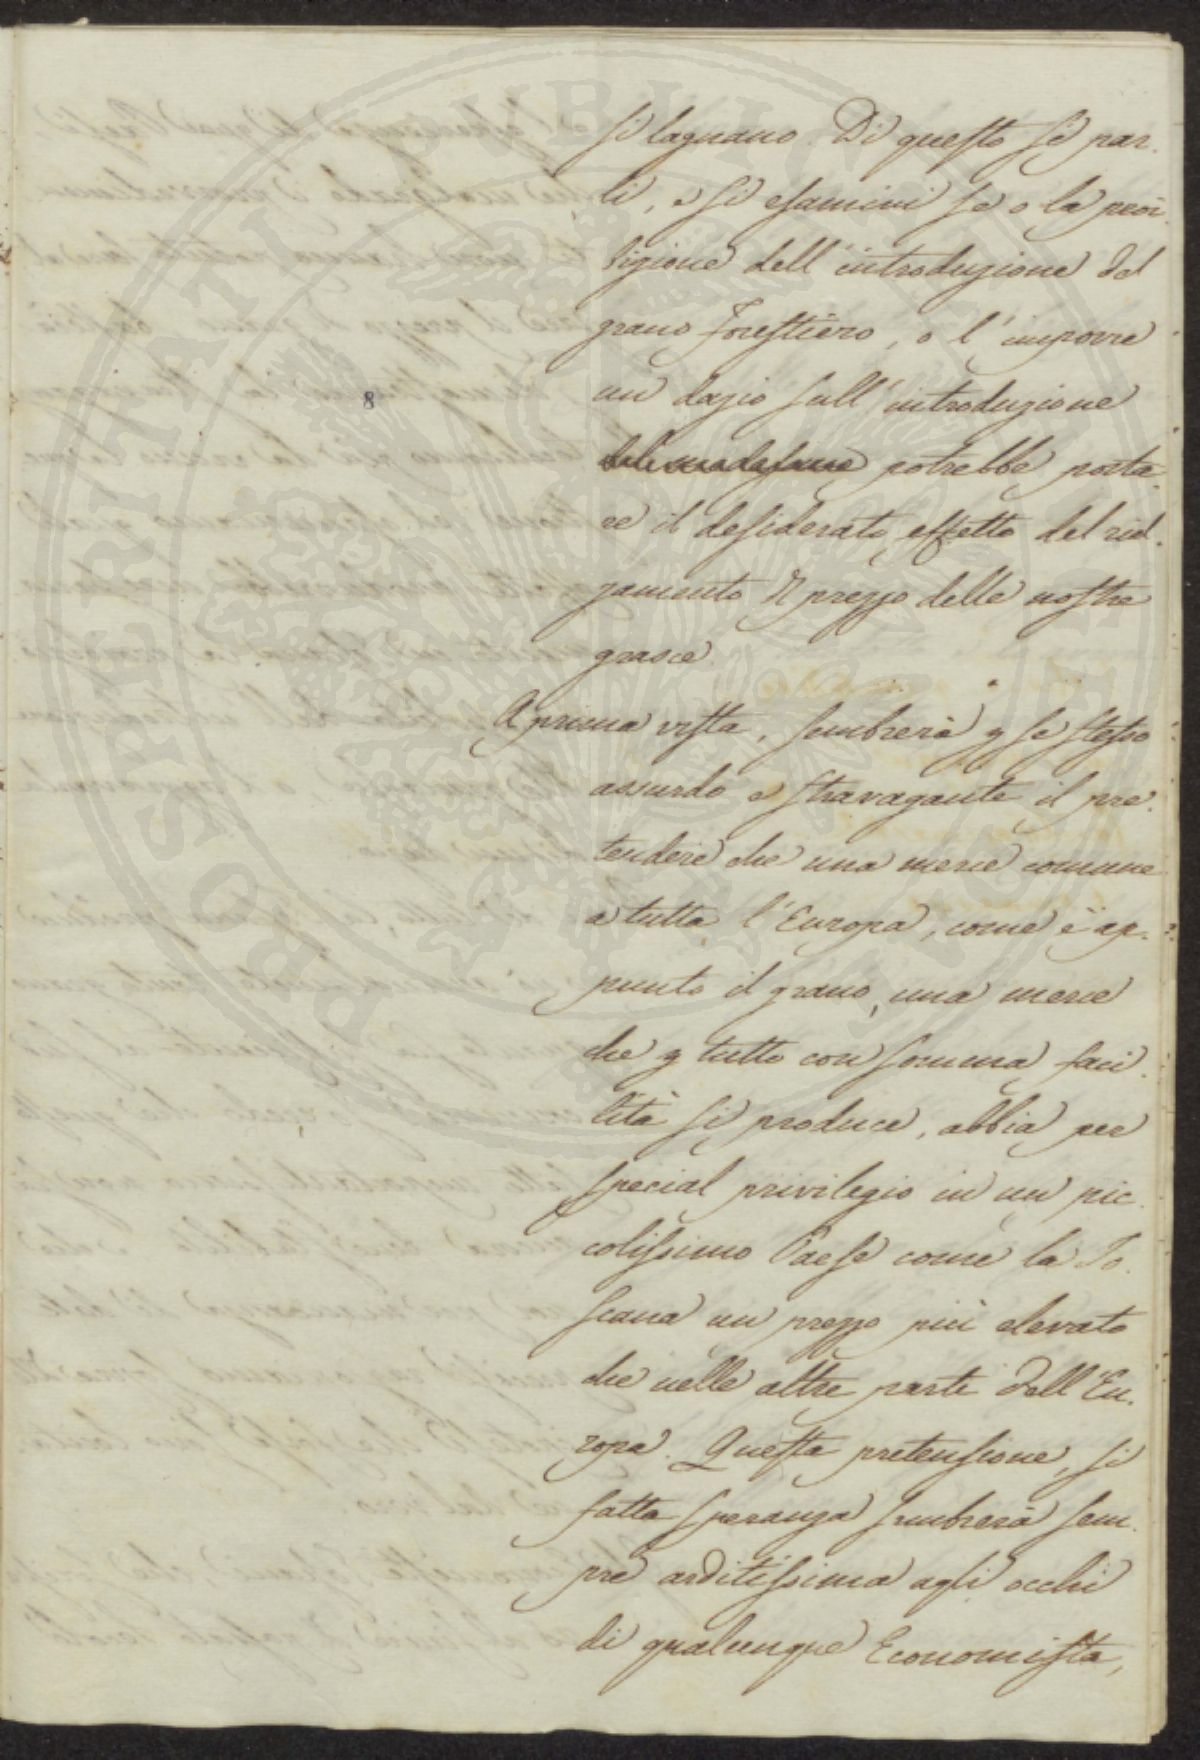 si lagnano. Di questo si par-
li, e si esamini se o la proi-
bizione dell'introduzione del
grano forestiero, o l'imporre
8
un dazio sull'introduzione
potrebbe porta-
re il desiderato effetto del rial-
zamento di prezzo delle nostre
grasce.
A prima vista, sembrerà p se stesso
assurdo e stravagante il pre-
tendere che una merce comune
a tutta l'Europa, come è ap-
punto il grano, una merce
che p tutto con somma faci-
lità si produce, abbia per
special privilegio in un pic-
colissimo Paese come la To-
scana un prezzo più elevato
che nelle altre parti dell'Eu-
ropa. Questa pretensione, si
fatta speranza sembrerà sem-
pre arditissima agli occhi
di qualunque Economista,
PROSPERITATI PUBLICAE